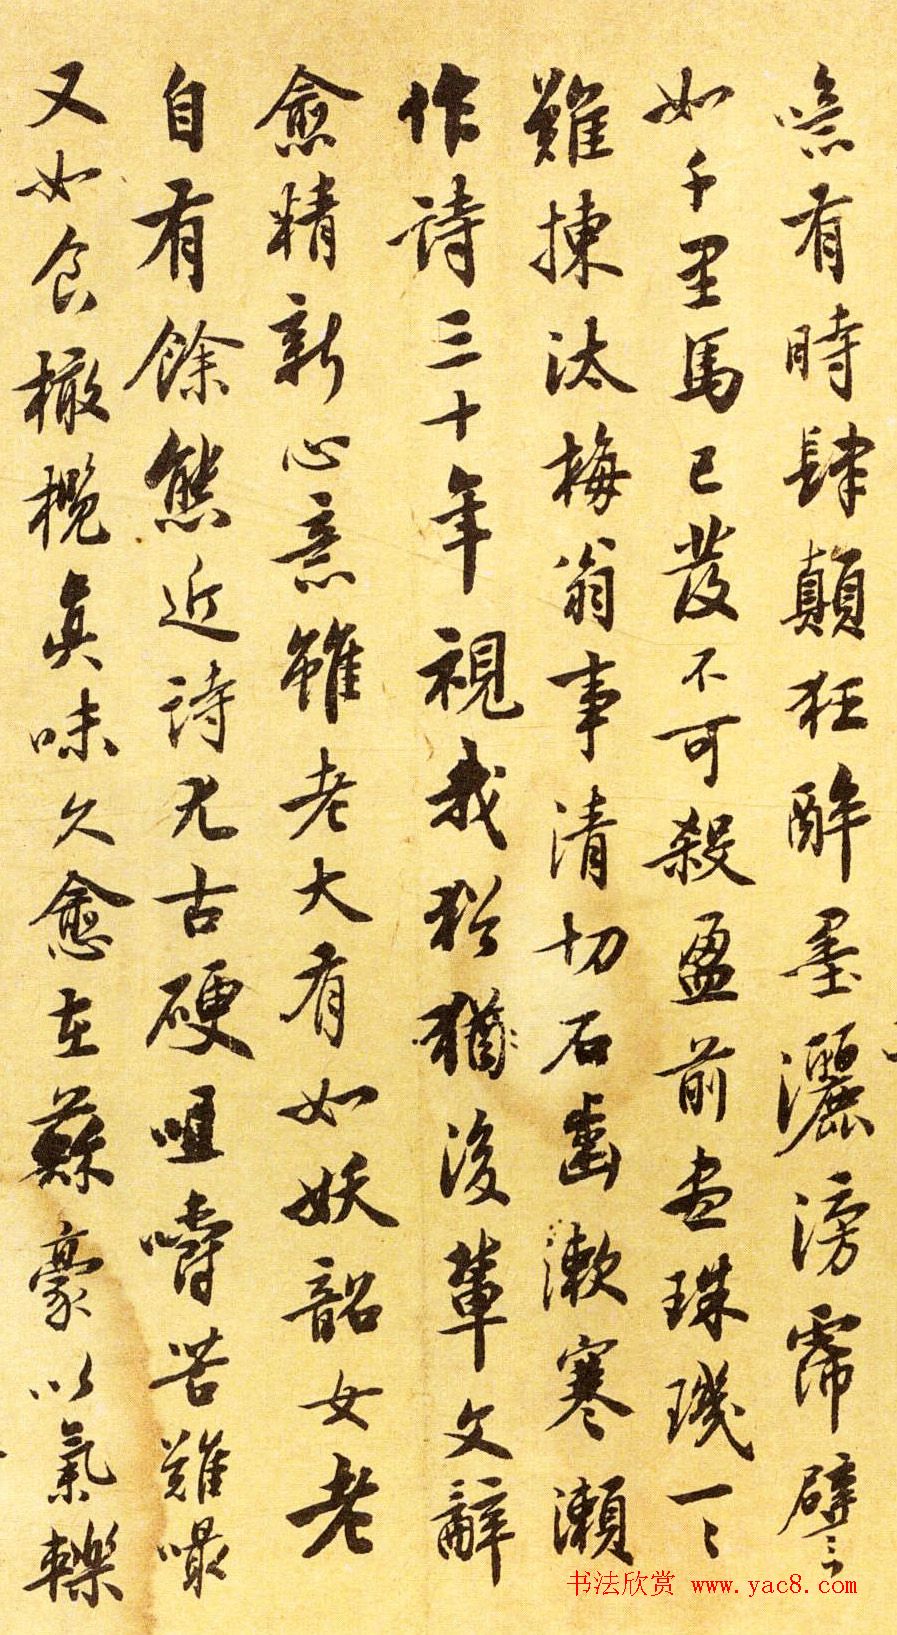 噫有時肆顛狂醉墨灑滂霈譬
如千里馬已發不可殺盈前盡珠璣一〻
難揀汰梅翁事清切石齒漱寒瀨
作詩三十年視我猶後輩文辭
愈精新心意雖老大有如妖韶女老
自有餘態近詩尤古硬咀嚼苦難嘬
又如食橄欖真味久愈在蘇豪以氣轢
书法欣赏 www.yac8.com